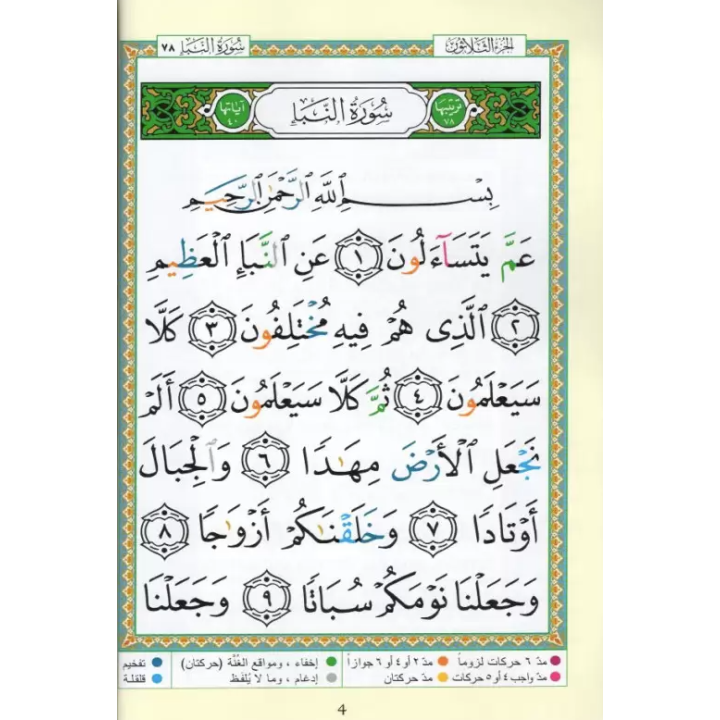 الجزء الثلاثون سورة النبإ ٧٨
ترتيبها ٧٨ سُورَةُ النَّبَإِ آياتها ٤٠
بِسْمِ ٱللَّهِ ٱلرَّحْمَٰنِ ٱلرَّحِيمِ
عَمَّ يَتَسَآءَلُونَ ١ عَنِ ٱلنَّبَإِ ٱلْعَظِيمِ
٢ ٱلَّذِى هُمْ فِيهِ مُخْتَلِفُونَ ٣ كَلَّا
سَيَعْلَمُونَ ٤ ثُمَّ كَلَّا سَيَعْلَمُونَ ٥ أَلَمْ
نَجْعَلِ ٱلْأَرْضَ مِهَٰدًا ٦ وَٱلْجِبَالَ
أَوْتَادًا ٧ وَخَلَقْنَٰكُمْ أَزْوَٰجًا ٨
وَجَعَلْنَا نَوْمَكُمْ سُبَاتًا ٩ وَجَعَلْنَا
مدّ ٦ حركات لزوماً مدّ ٢ أو ٤ أو ٦ جوازاً إخفاء ، ومواقع الغُنَّة (حركتان) تفخيم
مدّ واجب ٤ أو ٥ حركات مدّ حركتان إدغام ، وما لا يُلفَظ قلقلة
4